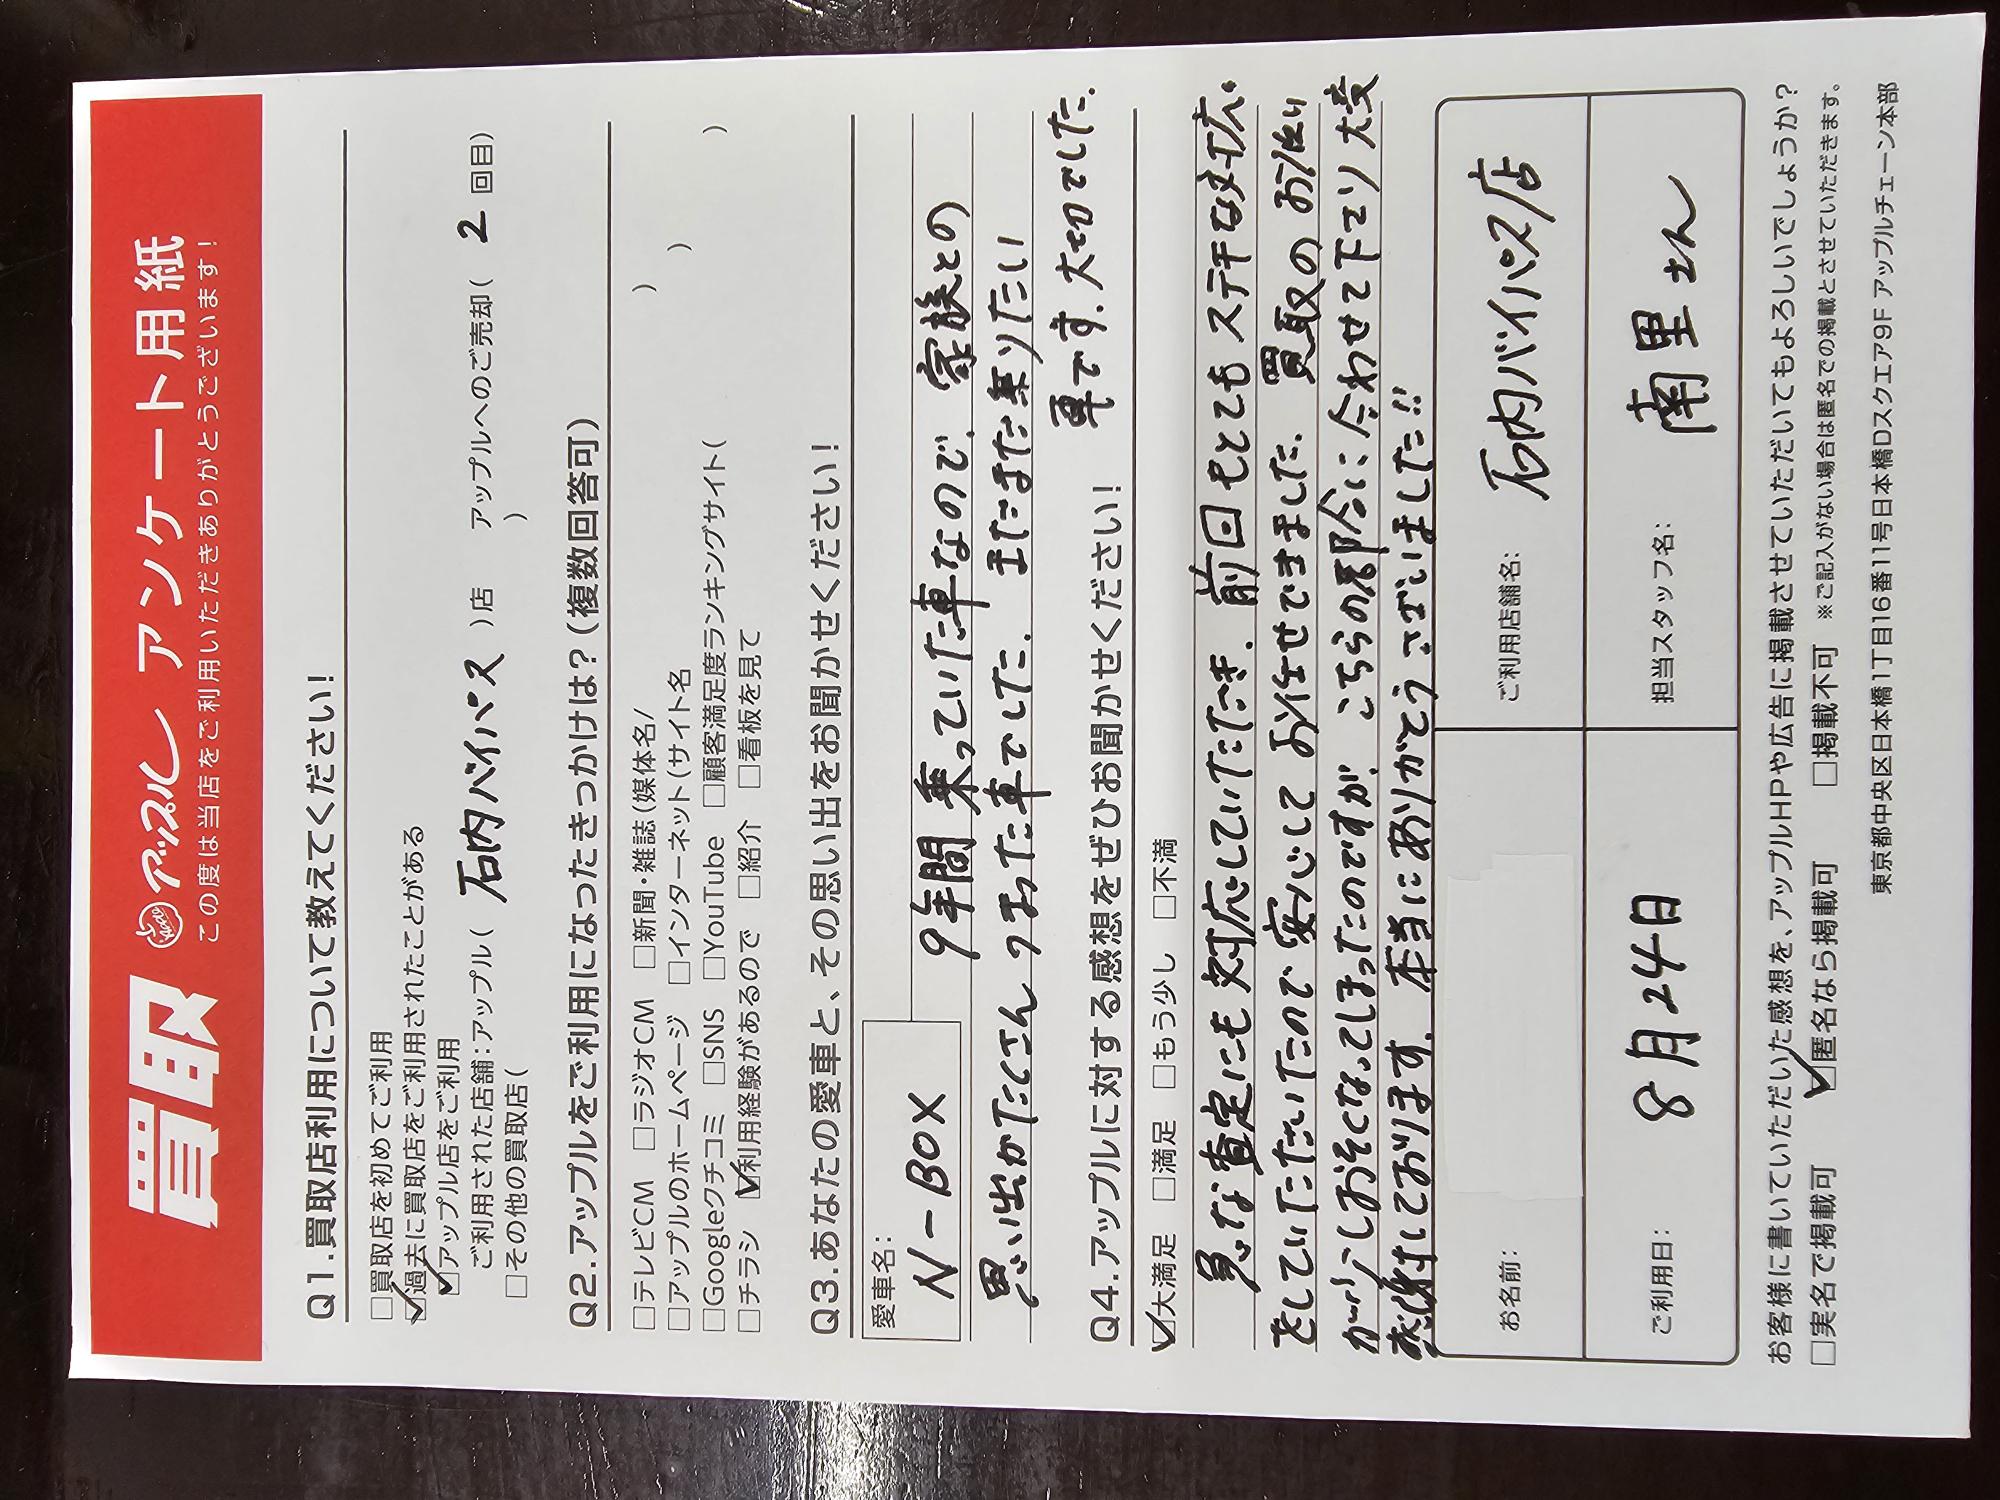 買取 アップル アンケート用紙
この度は当店をご利用いただきありがとうございます!
Q1.買取店利用について教えてください!
□買取店を初めてご利用
☑過去に買取店をご利用されたことがある
☑アップル店をご利用
ご利用された店舗:アップル( 石内バイパス )店 アップルへのご売却( 2 回目)
□その他の買取店( )
Q2.アップルをご利用になったきっかけは?(複数回答可)
□テレビCM □ラジオCM □新聞・雑誌(媒体名/ )
□アップルのホームページ □インターネット(サイト名 )
□Googleクチコミ □SNS □YouTube □顧客満足度ランキングサイト( )
□チラシ ☑利用経験があるので □紹介 □看板を見て
Q3.あなたの愛車と、その思い出をお聞かせください!
愛車名:
N-BOX
9年間 乗っていた車なので、家族との
思い出がたくさんつまった車でした。まだまだ乗りたい
車です。大切でした。
Q4.アップルに対する感想をぜひお聞かせください!
☑大満足 □満足 □もう少し □不満
急な査定にも対応していただき、前回もとてもステキな対応
をしていただいたので安心してお任せできました。買取のお伺い
が少しおそくなってしまったのですが、こちらの都合に合わせて下さり大変
感謝しております。本当にありがとうございました!!
お名前:
ご利用店舗名: 石内バイパス店
ご利用日: 8月24日
担当スタッフ名: 南里さん
お客様に書いていただいた感想を、アップルHPや広告に掲載させていただいてもよろしいでしょうか?
□実名で掲載可 ☑匿名なら掲載可 □掲載不可 ※ご記入がない場合は匿名での掲載とさせていただきます。
東京都中央区日本橋1丁目16番11号日本橋Dスクエア9F アップルチェーン本部